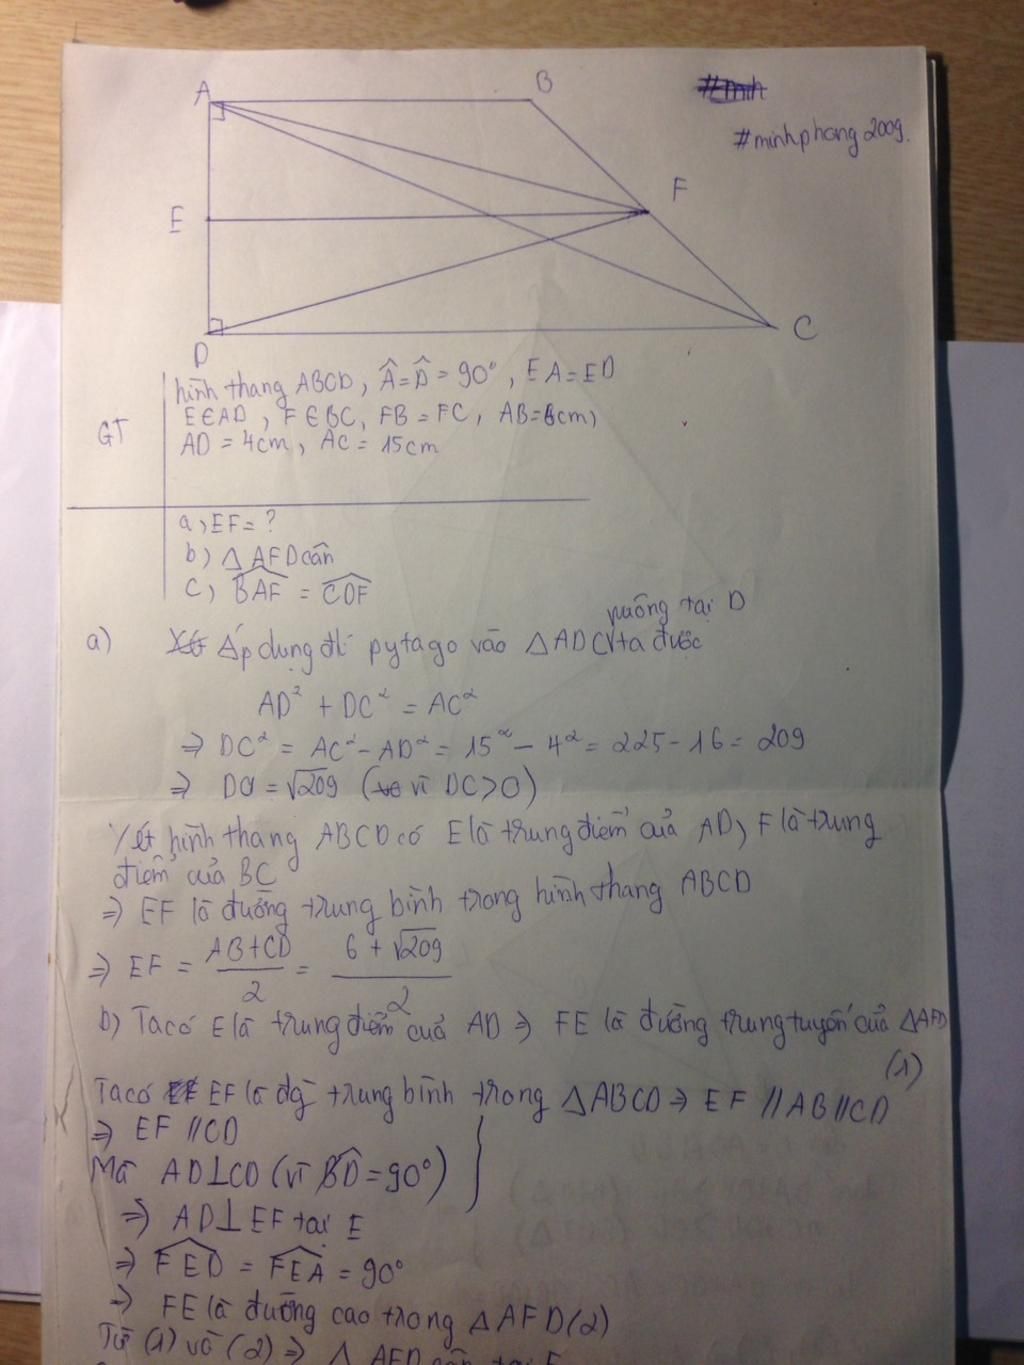 A
B
#minhphong2009.
E
F
D
C
hình thang ABCD, Â = D̂ = 90°, EA = ED
GT
E∈AD, F∈BC, FB = FC, AB=6cm,
AD = 4cm, AC = 15cm
a, EF = ?
b) △ AFD cân
c, BAF = CDF
vuông tại D
a) Áp dụng đlí pytago vào △ADC ta được
AD² + DC² = AC²
⇒ DC² = AC² - AD² = 15² - 4² = 225 - 16 = 209
⇒ DC = √209 (vì DC>0)
Xét hình thang ABCD có E là trung điểm của AD, F là trung
điểm của BC
⇒ EF là đường trung bình trong hình thang ABCD
⇒ EF = (AB+CD)/2 = (6 + √209)/2
b) Ta có E là trung điểm của AD ⇒ FE là đường trung tuyến của △AFD
(1)
Ta có EF là đg trung bình trong △ABCD ⇒ EF // AB // CD
⇒ EF // CD
Mà AD⊥CD (vì D̂ = 90°)
⇒ AD⊥EF tại E
⇒ FED = FEA = 90°
⇒ FE là đường cao trong △AFD (2)
Từ (1) và (2) ⇒ △ AFD cân tại F